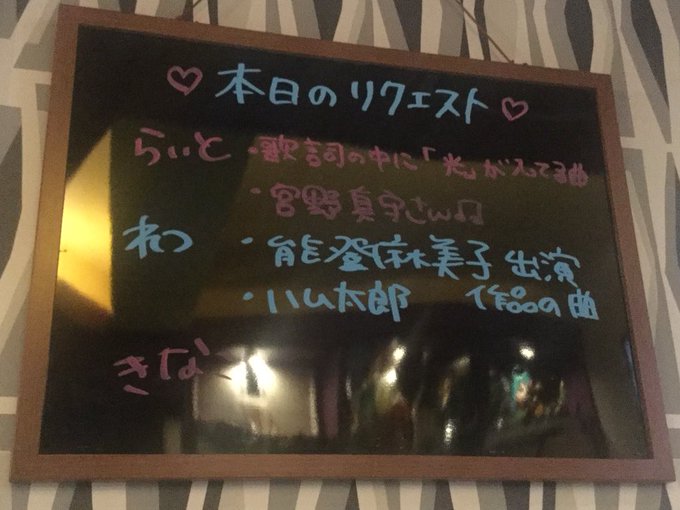 ♡ 本日のリクエスト ♡
らいと ・歌詞の中に「光」が入ってる曲
・宮野真守さん♫
れつ ・能登麻美子 出演
・ハム太郎 作品の曲
きなこ